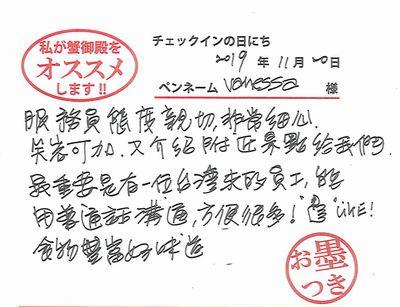 私が蟹御殿を
オススメ
します!!
チェックインの日にち
2019 年 11 月 20 日
ペンネーム Vanessa 様
服務員態度親切,非常細心.
笑容可加.又介紹附近景點給我們.
最重要是有一位台灣來的員工,能
用普通話溝通,方便很多! 值 LIKE!
食物豐富好味道
お墨
つき